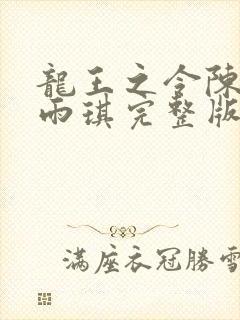 龍王之令陳
雨琪完整版
滿座衣冠勝雪